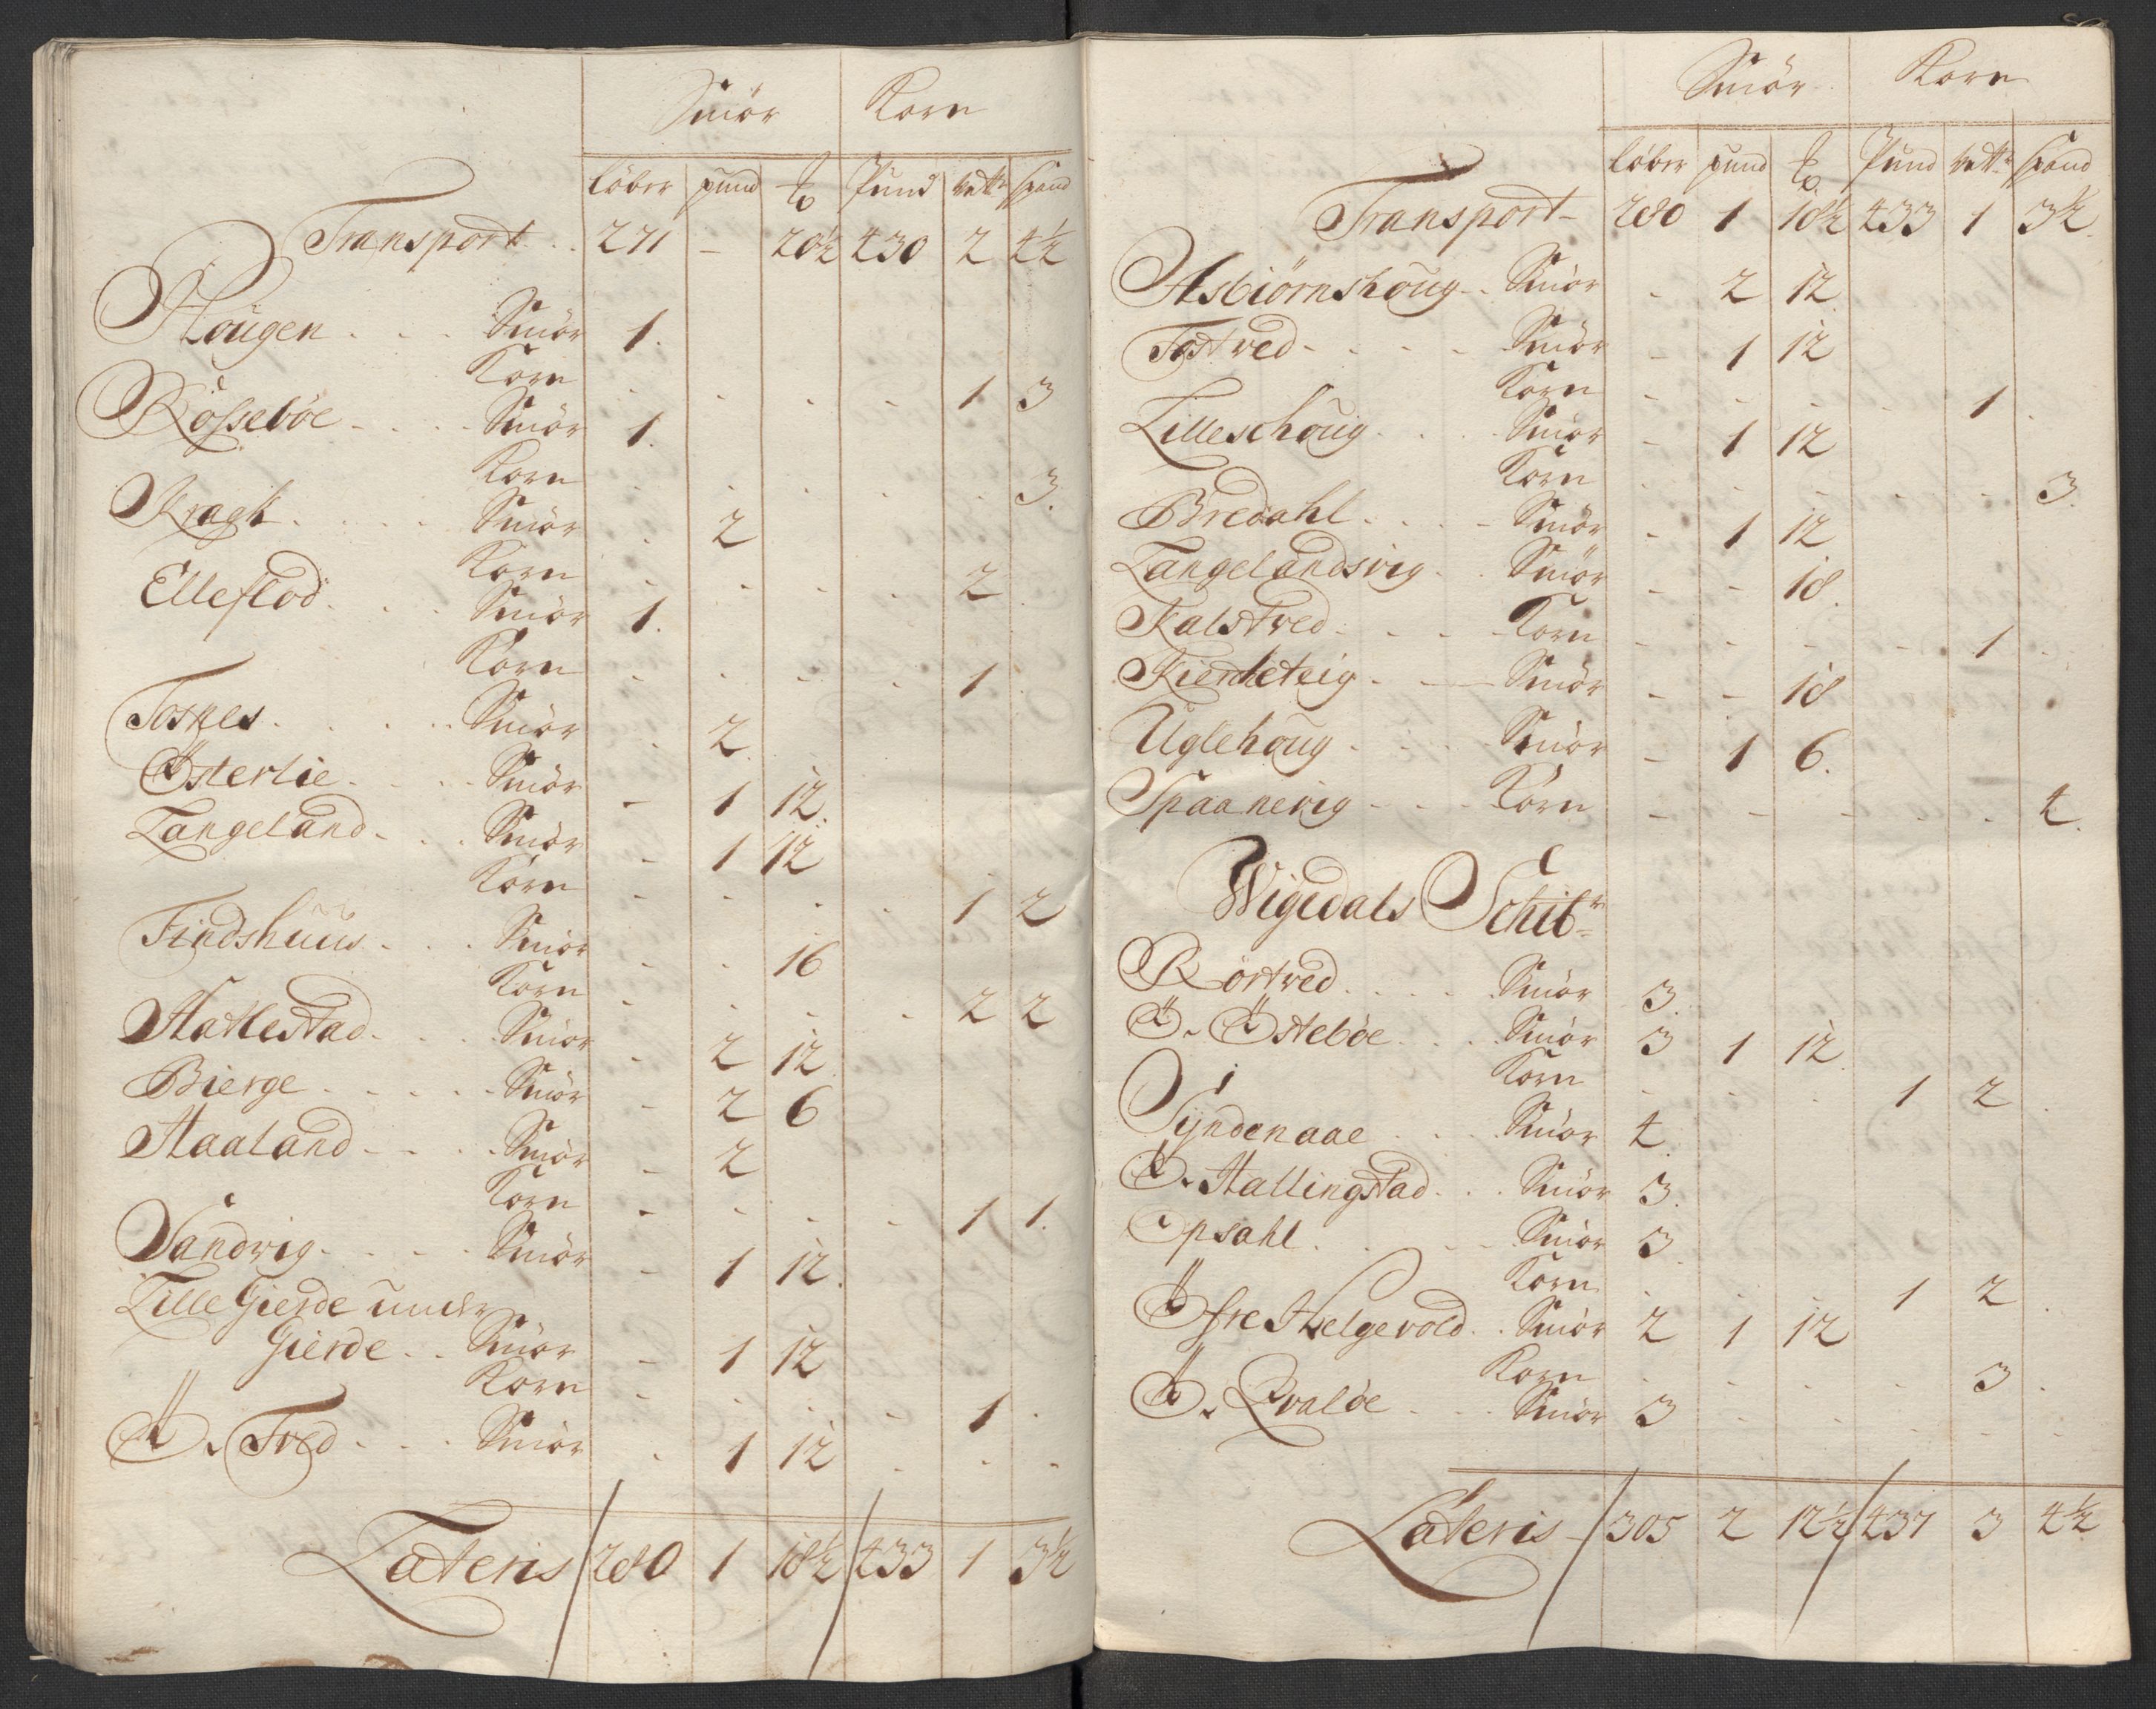 Smör Korn
löber pund ℔ Pund vett: spand
Transport . . 271 - 20½ 430 2 4½
Hougen . . . Smör 1.
Korn . . . . 1 3
Rösseböe - . . . Smör 1.
Korn . . . . . 3.
Kragh . . . . Smör . 2
Korn . . . . 2 .
Elleflod . . . Smör 1.
Korn . . . . 1 .
Toskes . . . . . Smör . 2.
Österlie . . . Smör - 1 12.
Langeland - . . Smör - 1 12
Korn - . . . 1 2
Findshuus . . . Smör - . 16
Korn - . . . 2 2
Hatlestad - . . . Smör - 2 12.
Bierge . . . . . Smör - 2 6
Haaland - . . . Smör - 2
Korn - . . . 1 1.
Sandvig - . . . Smör - 1 12.
Lille Gierde under
Gierde . . Smör - 1 12
Korn - . . . 1 .
Ö. Tved . . . Smör . 1 12 . . .
Lateris 280 1 18½ 433 1 3½
Smör Korn
löber pund ℔ Pund vett: spand
Transport - 280 1 18½ 433 1 3½.
Asbiörnshoug - . Smör - 2 12
Tostved - . . . - Smör - 1 12
Korn - . . . 1 .
Lilleschoug . . . . Smör - 1 12
Korn . . . . . 3.
Bredahl . . . . Smör - 1 12
Langelandsvig . . Smör - - 18.
Kalstved . . . . Korn - . . . 1 .
Kiercheteig - . - Smör - - 18
Uglehoug . . . . Smör - 1 6.
Spaanevig - . . Korn - - . . . 4.
Wigedals Schib:r
Rörtved . . . . Smör 3.
Ö. Östeböe . . . Smör 3 1 12.
Korn . . . 1 2 .
Syndenaae . . . Smör 4.
Ö. Hallingstad . . . Smör 3.
Opsahl . . . - Smör 3.
Korn . . . 1 2 .
Öfre Helgevold . . Smör 2 1 12
Korn . . . . 3 .
Ö. Qvalöe . . . Smör 3 . . . . .
Lateris - 305 2 12½ 437 3 4½